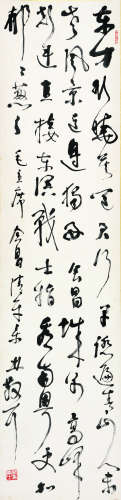 东方欲晓莫道君行早踏遍青山人未
老风景这边独好会昌城外高峰
颠连直接东溟战士指看南粤更加
郁々葱々毛主席会昌清平乐林散耳